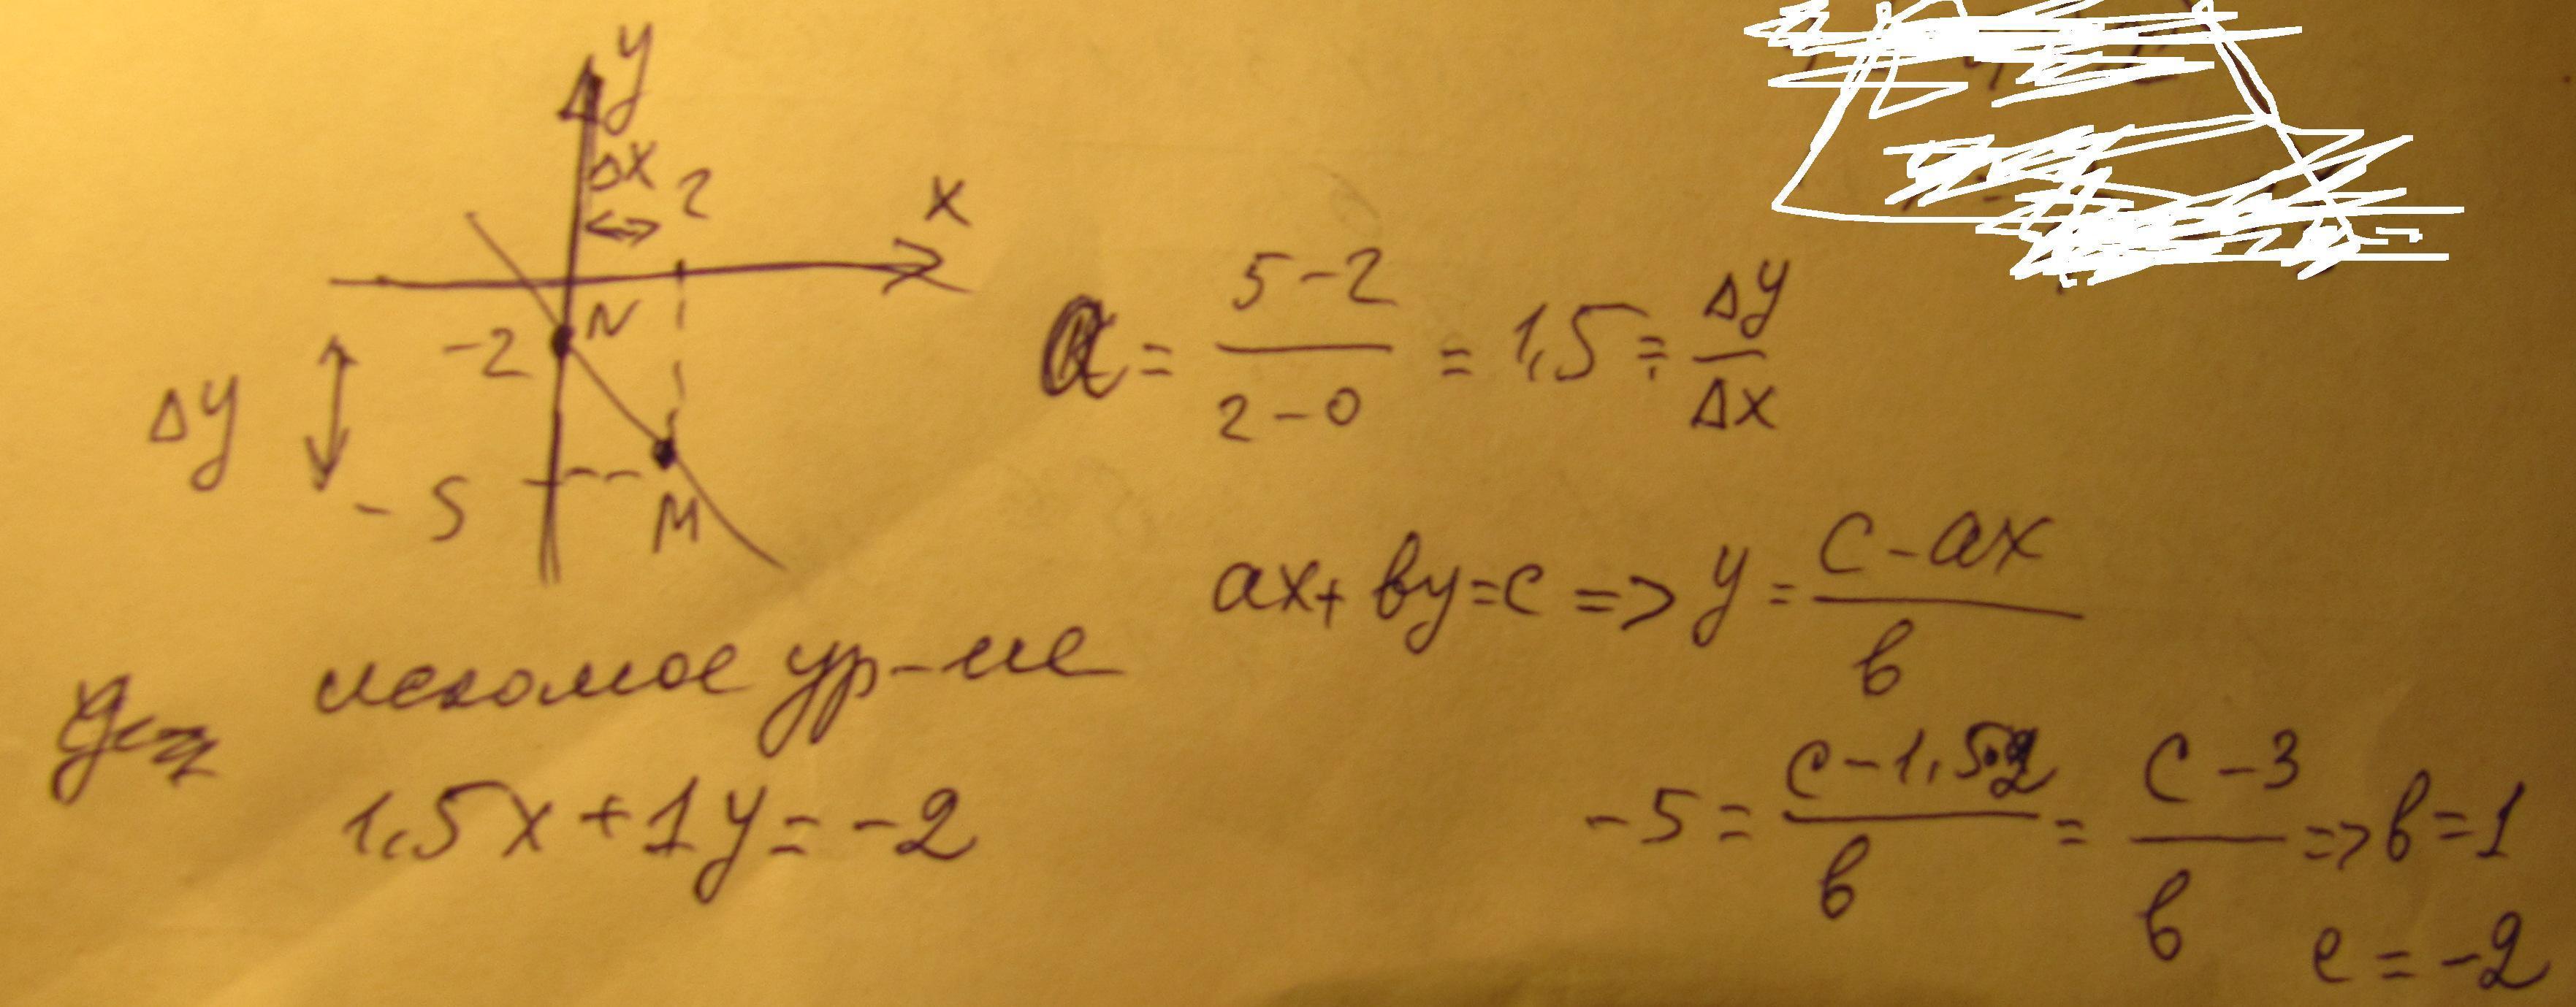 y
Δx
2
x
N
-2
Δy
-5
M
a = 5-2 / 2-0 = 1,5 = Δy / Δx
ax + by = c => y = c - ax / b
искомое ур-ие
1,5x + 1y = -2
-5 = c - 1,5·2 / b = c - 3 / b => b = 1
c = -2